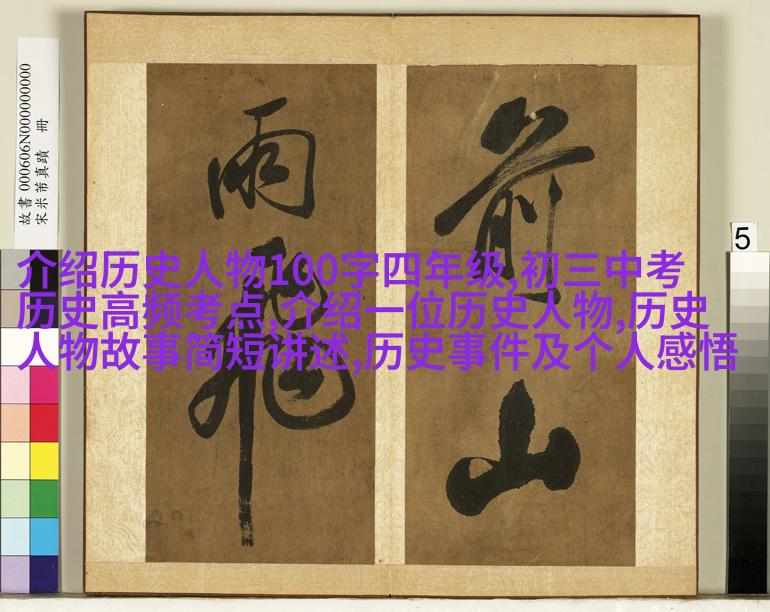 介绍历史人物100字四年级,初三中考
历史高频考点,介绍一位历史人物,历史
人物故事简短讲述,历史事件及个人感悟
前山
雨飛
故書 000606N000000000
宋米芾真蹟 冊
5